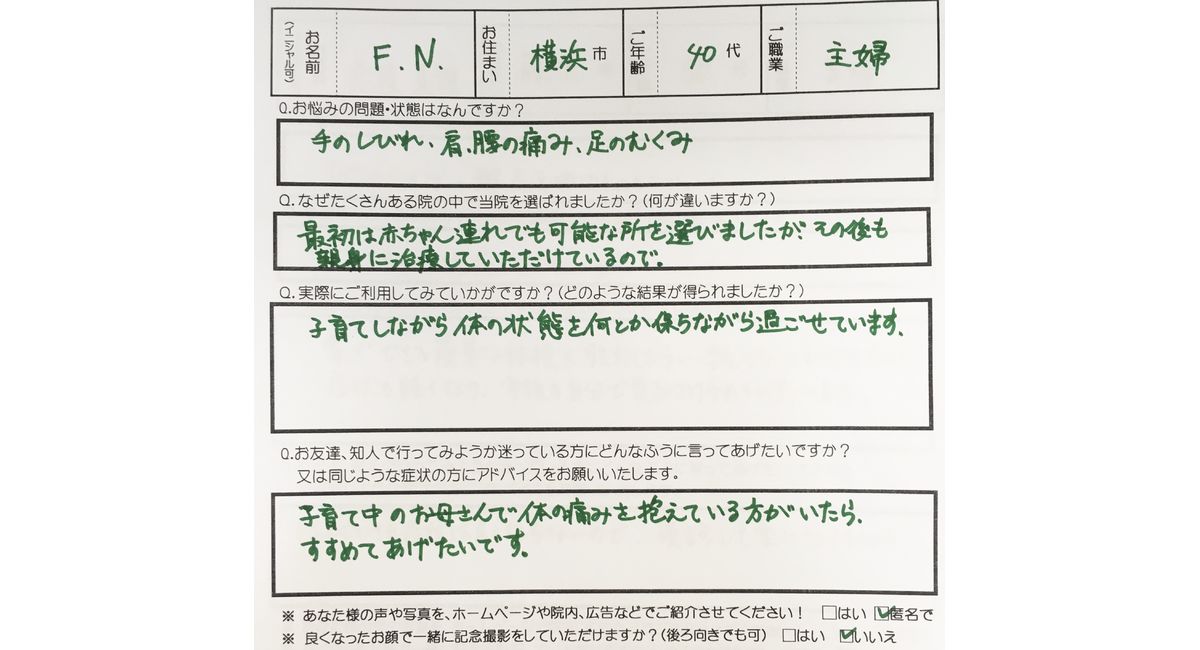 お名前 (イニシャル可) F.N. お住まい 横浜市 ご年齢 40代 ご職業 主婦
Q.お悩みの問題・状態はなんですか?
手のしびれ、肩、腰の痛み、足のむくみ
Q.なぜたくさんある院の中で当院を選ばれましたか?(何が違いますか?)
最初は赤ちゃん連れでも可能な所を選びましたが、その後も
親身に治療していただけているので。
Q.実際にご利用してみていかがですか?(どのような結果が得られましたか?)
子育てしながら体の状態を何とか保ちながら過ごせています。
Q.お友達、知人で行ってみようか迷っている方にどんなふうに言ってあげたいですか?
又は同じような症状の方にアドバイスをお願いいたします。
子育て中のお母さんで体の痛みを抱えている方がいたら、
すすめてあげたいです。
※ あなた様の声や写真を、ホームページや院内、広告などでご紹介させてください! □はい ☑匿名で
※ 良くなったお顔で一緒に記念撮影をしていただけますか?(後ろ向きでも可) □はい ☑いいえ